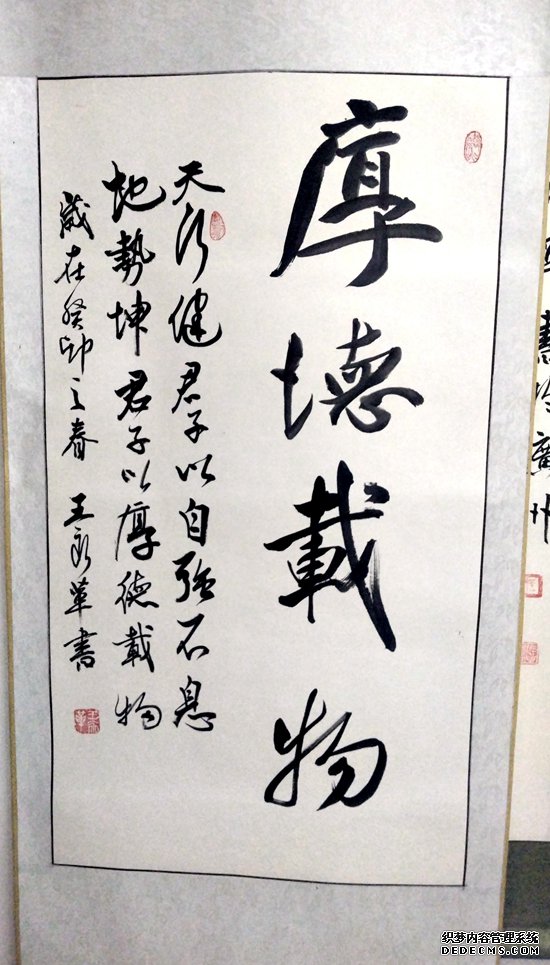 厚德載物
天行健君子以自强不息
地勢坤君子以厚德載物
歲在癸卯之春 王永革書
织梦内容管理系统
DEDECMS.COM